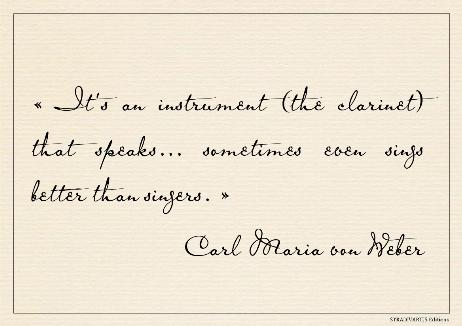 « It's an instrument (the clarinet)
that speaks... sometimes even sings
better than singers. »
Carl Maria von Weber
STRADIVARIUS Editions